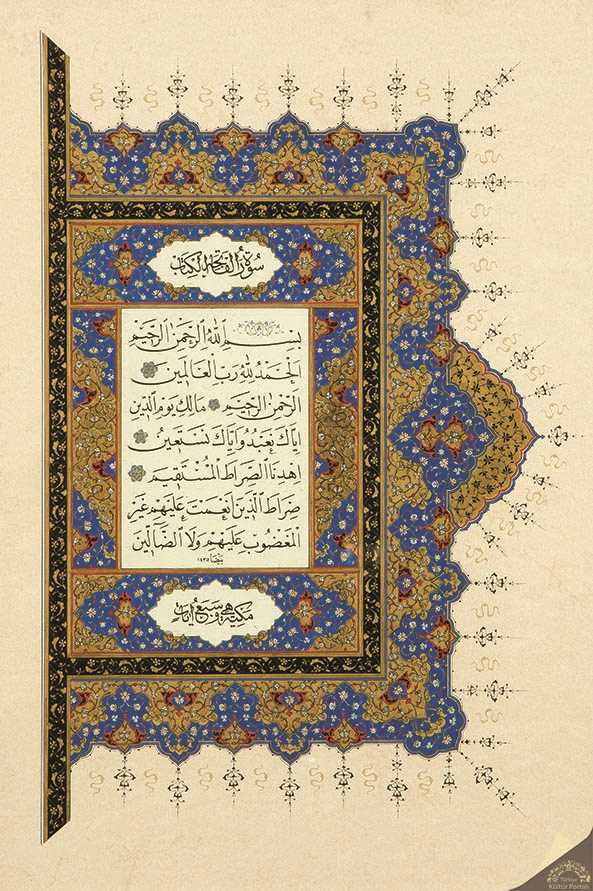 سورة الفاتحة الكتاب
بسم الله الرحمن الرحيم
الحمد لله رب العالمين
الرحمن الرحيم مالك يوم الدين
اياك نعبد واياك نستعين
اهدنا الصراط المستقيم
صراط الذين انعمت عليهم غير
المغضوب عليهم ولا الضالين
مكية هي وسبع ايات
Türkiye
Kültür Portalı